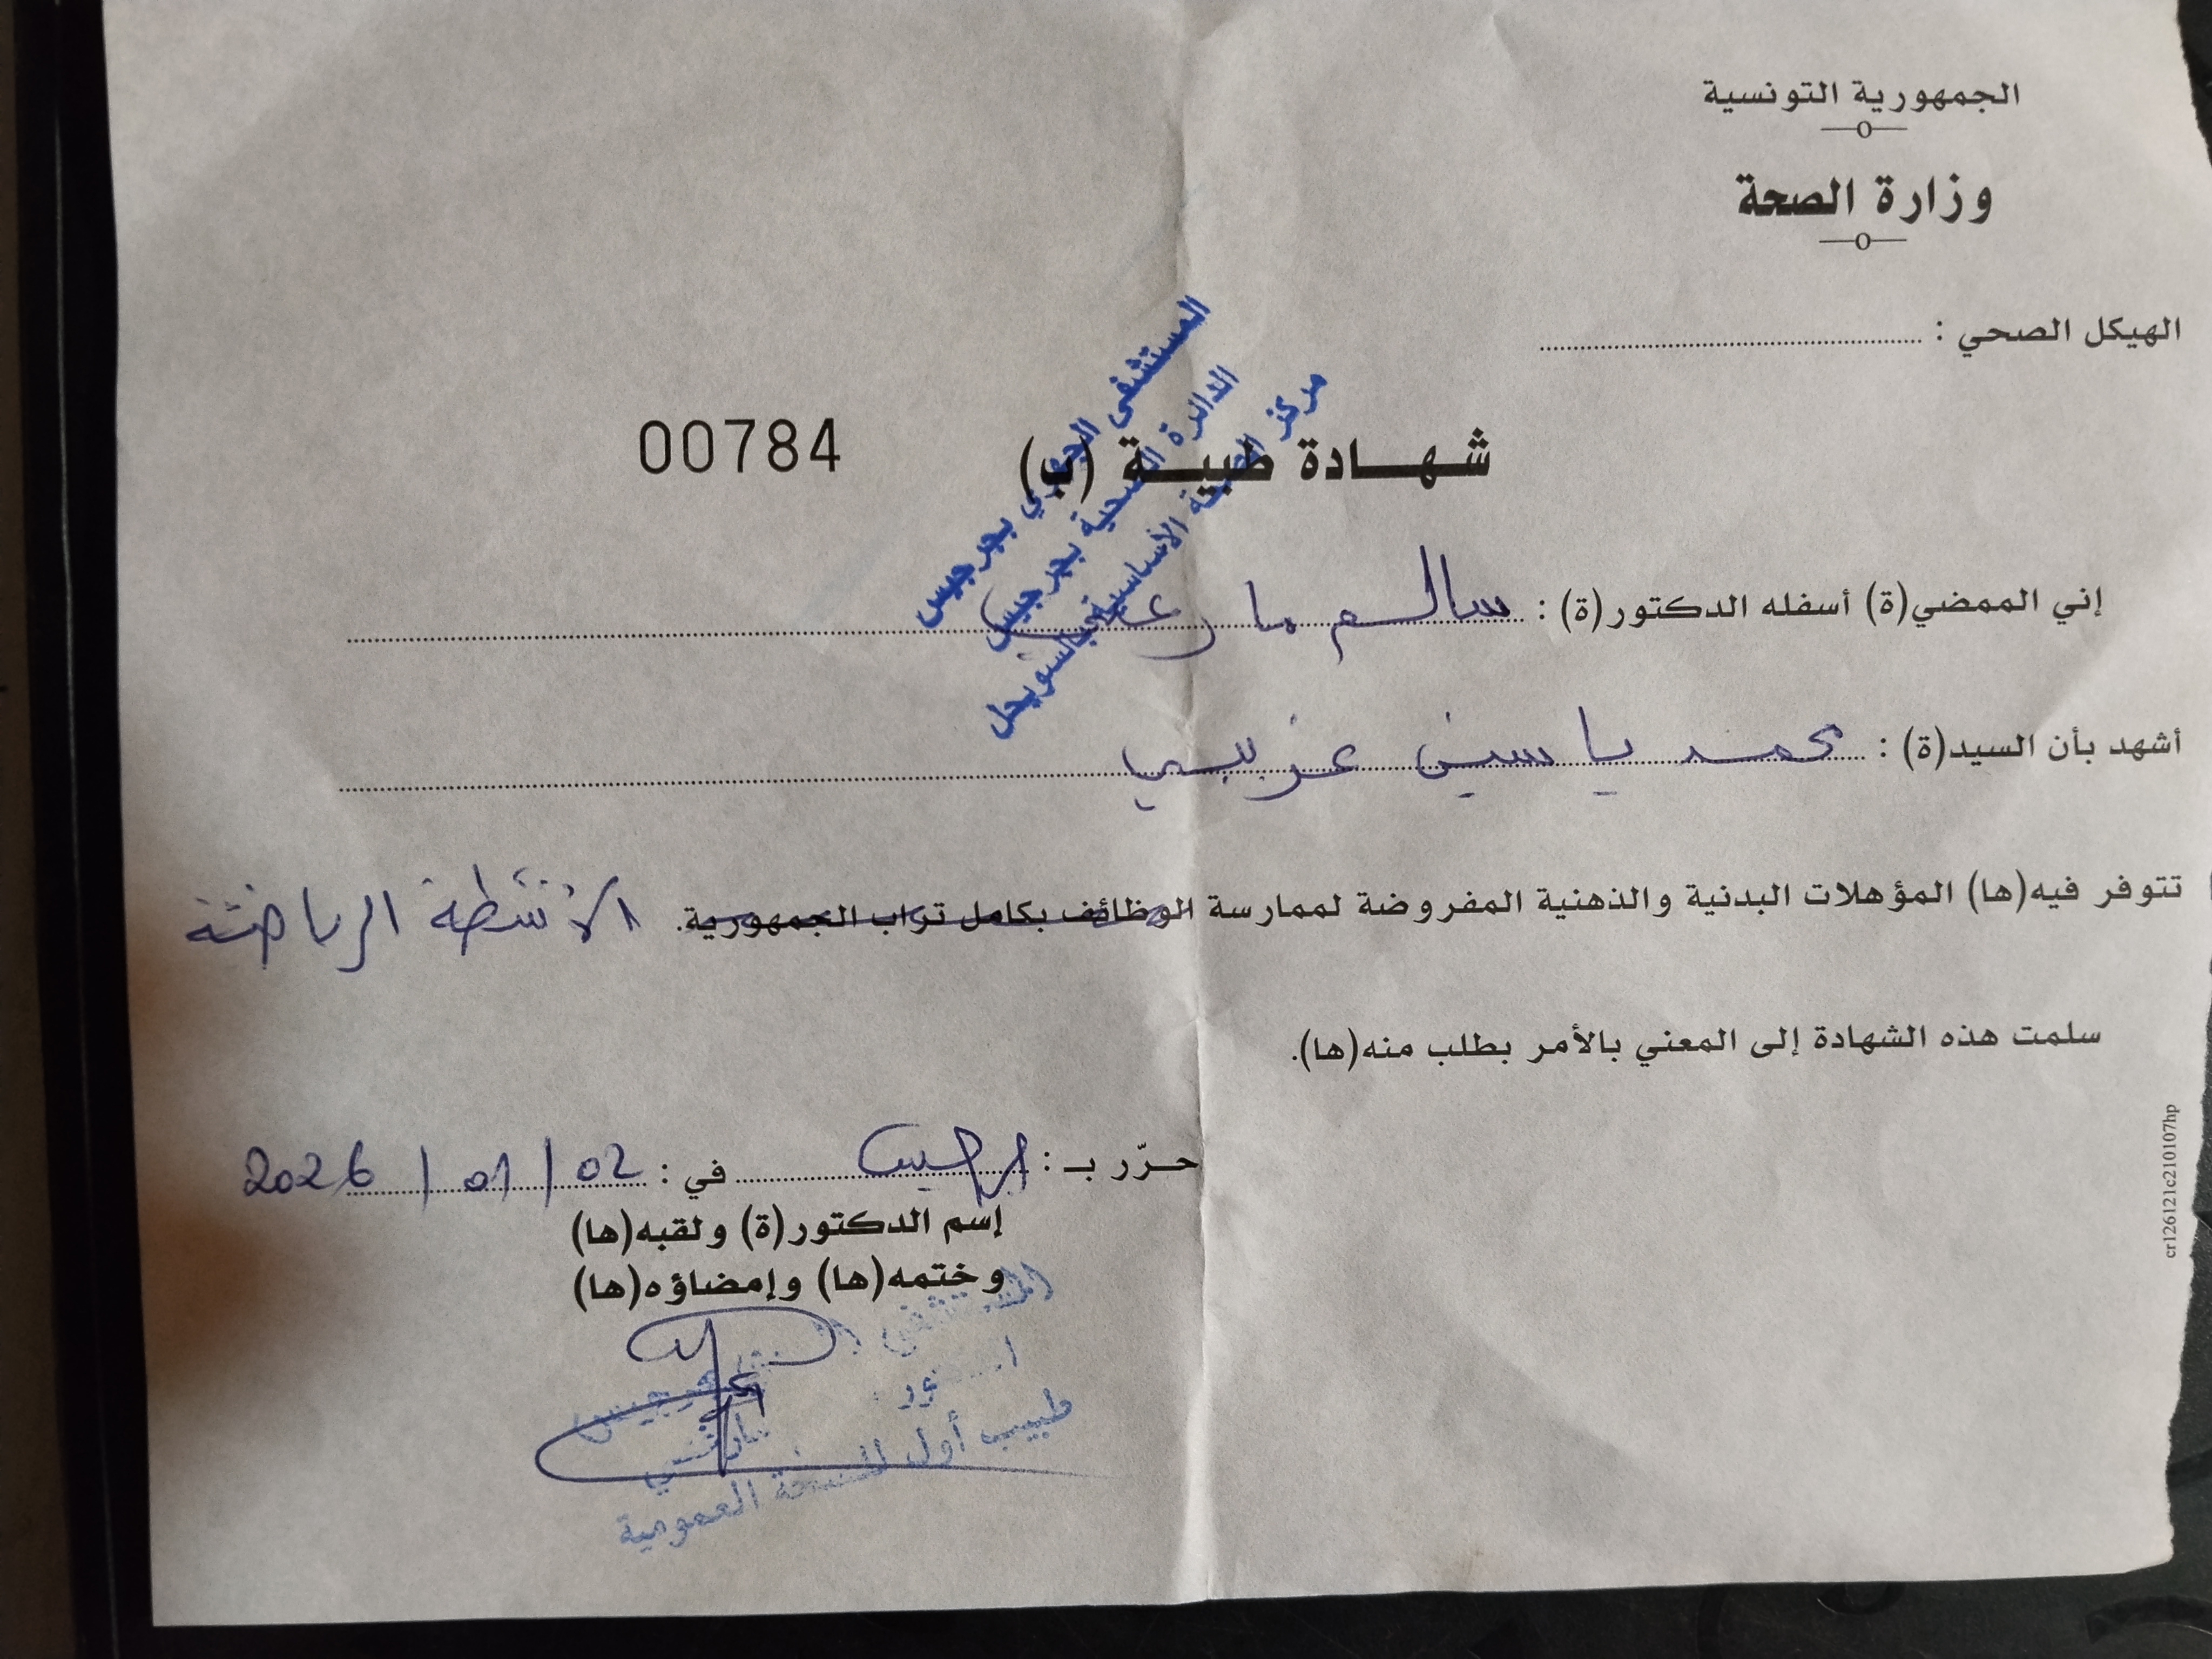 الجمهورية التونسية
وزارة الصحة
الهيكل الصحي :
المستشفى الجهوي بجرجيس
الدائرة الصحية بجرجيس
مركز الصحة الأساسية السويحل
شهادة طبية (ب) 00784
إني الممضي(ة) أسفله الدكتور(ة) : سالم
أشهد بأن السيد(ة) : محمد ياسين عزيبي
تتوفر فيه(ها) المؤهلات البدنية والذهنية المفروضة لممارسة الوظائف بكامل تراب الجمهورية. الأنشطة الرياضية
سلمت هذه الشهادة إلى المعني بالأمر بطلب منه(ها).
حرّر بـ : جرجيس في : 02 / 01 / 2026
إسم الدكتور(ة) ولقبه(ها)
وختمه(ها) وإمضاؤه(ها)
المستشفى بجرجيس
طبيب أول للصحة العمومية
cr126121c210107hp